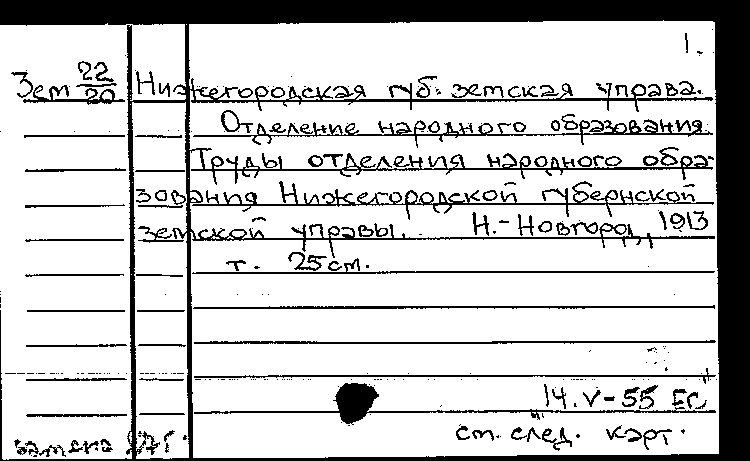 1.
Зем 22/20 Нижегородская губ. земская управа.
Отделение народного образования.
Труды отделения народного обра-
зования Нижегородской губернской
земской управы. Н.-Новгород, 1913
т. 25 см.
14.V-55 ЕС
замена
см. след. карт.